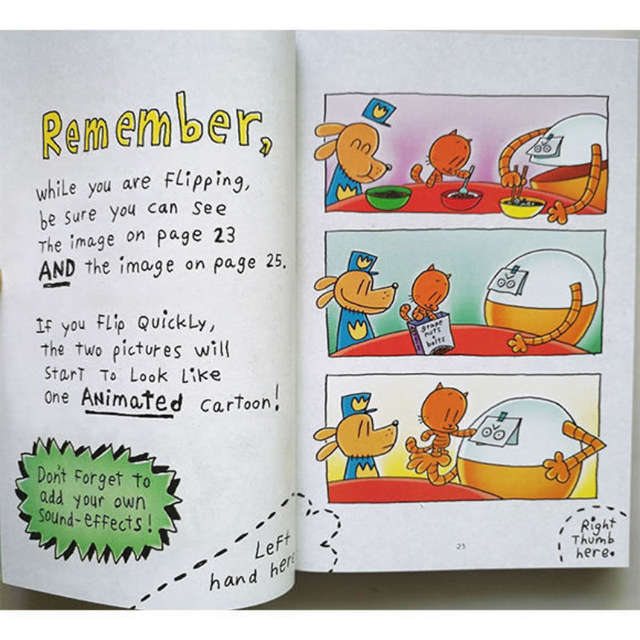 Remember,
while you are Flipping,
be sure you can see
The image on page 23
AND the image on page 25.
If you Flip Quickly,
the two pictures will
START To Look Like
one ANimated cartoon!
Don't Forget to
add your own
Sound-effects!
Left
hand here
grape
nuts
n
bolts
23
Right
Thumb
here.